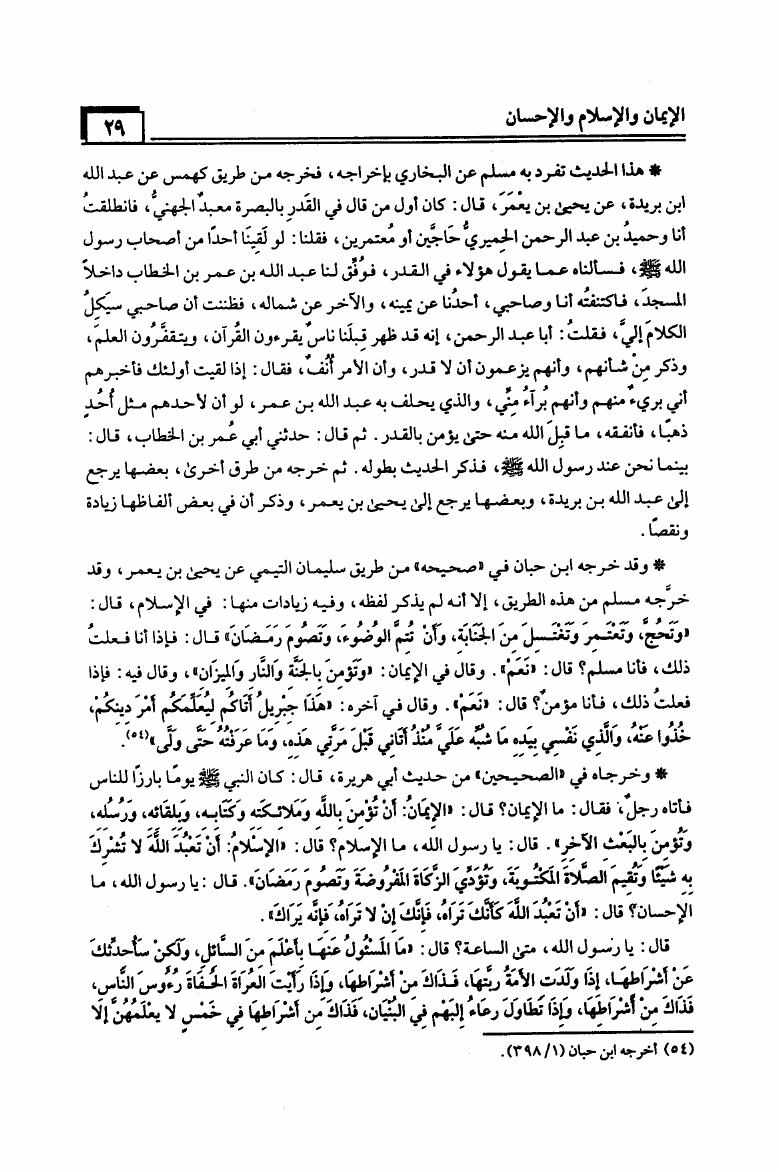 الإيمان والإسلام والإحسان
٢٩
* هذا الحديث تفرد به مسلم عن البخاري بإخراجه، فخرجه من طريق كهمس عن عبد الله
ابن بريدة، عن يحيىٰ بن يَعْمَرَ، قال: كان أول من قال في القَدَرِ بالبصرة معبدٌ الجهنيُّ، فانطلقتُ
أنا وحميدُ بن عبد الرحمن الحِميريُّ حَاجَّين أو مُعتمرين، فقلنا: لو لَقِينَا أحدًا من أصحاب رسول
الله ﷺ، فسألناه عما يقول هؤلاء في القدر، فوُفِّق لنا عبد الله بن عمر بن الخطاب داخلاً
المسجدَ، فاكتنفتُه أنا وصاحبي، أحدُنا عن يمينه، والآخر عن شماله، فظننت أن صاحبي سيَكِلُ
الكلامَ إليَّ، فقلتُ: أبا عبد الرحمن، إنه قد ظهر قِبلَنا ناسٌ يقرءون القُرآن، ويتقفَّرُون العلمَ،
وذكر مِنْ شأنهم، وأنهم يزعمون أن لا قدر، وأن الأمر أُنُفٌ، فقال: إذا لقيت أولئك فأخبرهم
أني بريءٌ منهم وأنهم بُرآءُ مِنِّي، والذي يحلف به عبد الله بن عمر، لو أن لأحدهم مثل أُحُدٍ
ذهبًا، فأنفقه، ما قبِلَ الله منه حتىٰ يؤمن بالقدر. ثم قال: حدثني أبي عُمر بن الخطاب، قال:
بينما نحن عند رسول الله ﷺ، فذكر الحديث بطوله. ثم خرجه من طرق أخرىٰ، بعضها يرجع
إلىٰ عبد الله بن بريدة، وبعضها يرجع إلىٰ يحيىٰ بن يعمر، وذكر أن في بعض ألفاظها زيادة
ونقصًا.
* وقد خرجه ابن حبان في «صحيحه» من طريق سليمان التيمي عن يحيىٰ بن يعمر، وقد
خرَّجه مسلم من هذه الطريق، إلا أنه لم يذكر لفظه، وفيه زيادات منها: في الإسلام، قال:
«وَتَحُجَّ، وَتَعْتَمِرَ وَتَغْتَسِلَ مِنَ الجَنَابَةِ، وَأَنْ تُتِمَّ الوُضُوءَ، وَتَصُومَ رَمَضَانَ» قال: فإذا أنا فعلتُ
ذلك، فأنا مسلم؟ قال: «نَعَمْ». وقال في الإيمان: «وَتُؤمِنَ بِالجَنَّةِ وَالنَّارِ وَالمِيزَانِ»، وقال فيه: فإذا
فعلتُ ذلك، فأنا مؤمنٌ؟ قال: «نَعَمْ». وقال في آخره: «هَذَا جِبْرِيلُ أَتَاكُم لِيُعَلِّمَكُم أَمْرَ دِينِكُمْ،
خُذُوا عَنْهُ، وَالَّذِي نَفْسِي بِيَدِهِ مَا شُبِّه عَلَيَّ مُنْذُ أَتَانِي قَبْلَ مَرَّتِي هَذِهِ، وَمَا عَرَفْتُهُ حَتَّى وَلَّى»(٥٤).
* وخرجاه في «الصحيحين» من حديث أبي هريرة، قال: كان النبي ﷺ يومًا بارزًا للناس
فأتاه رجلٌ، فقال: ما الإيمان؟ قال: «الإِيمَانُ: أَنْ تُؤْمِنَ بِاللَّهِ وَمَلائِكَتِهِ وَكِتَابِهِ، وَبِلِقَائِهِ، وَرُسُلِهِ،
وَتُؤمِنَ بِالبَعْثِ الآخِرِ». قال: يا رسول الله، ما الإسلام؟ قال: «الإِسْلامُ: أَنْ تَعْبُدَ اللَّهَ لا تُشْرِكَ
بِهِ شَيْئًا وَتُقِيمَ الصَّلاةَ المَكْتُوبَةَ، وَتُؤَدِّيَ الزَّكَاةَ المَفْرُوضَةَ وَتَصُومَ رَمَضَانَ». قال: يا رسول الله، ما
الإحسان؟ قال: «أَنْ تَعْبُدَ اللَّهَ كَأَنَّكَ تَرَاهُ، فَإِنَّكَ إِنْ لا تَرَاهُ، فَإِنَّه يَرَاكَ».
قال: يا رسول الله، متىٰ الساعة؟ قال: «مَا المَسْئُولُ عَنْهَا بِأَعْلَمَ مِنَ السَّائِلِ، وَلَكِنْ سَأُحَدِّثُكَ
عَنْ أَشْرَاطِهَا، إِذَا وَلَدَتِ الأَمَةُ رَبَّتَهَا، فَذَاكَ مِنْ أَشْرَاطِهَا، وَإِذَا رَأَيْتَ العُرَاةَ الحُفَاةَ رُءُوسَ النَّاسِ،
فَذَاكَ مِنْ أَشْرَاطِهَا، وَإِذَا تَطَاوَلَ رِعَاءُ البَهْمِ فِي البُنْيَانِ، فَذَاكَ مِن أَشْرَاطِهَا فِي خَمْسٍ لا يَعْلَمُهُنَّ إِلَّا
(٥٤) أخرجه ابن حبان (١/ ٣٩٨).